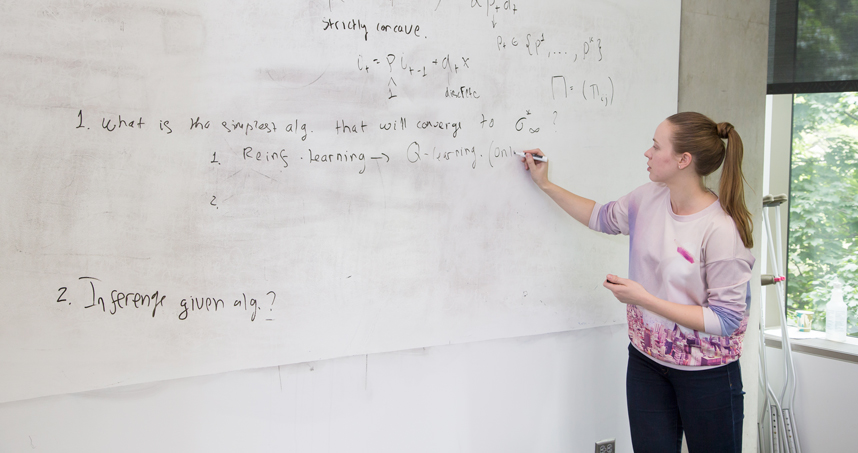 α p₊ d₊
strictly concave.
p₊ ∈ {p¹, ..., pˣ}
i₊ = p i₊₋₁ + d₊ x
Π = (Π᛫,ⱼ)
1
1. What is the simplest alg. that will converge to σ*∞ ?
1. Reinf. learning → Q-learning. (onl
2.
2. Inference given alg. ?